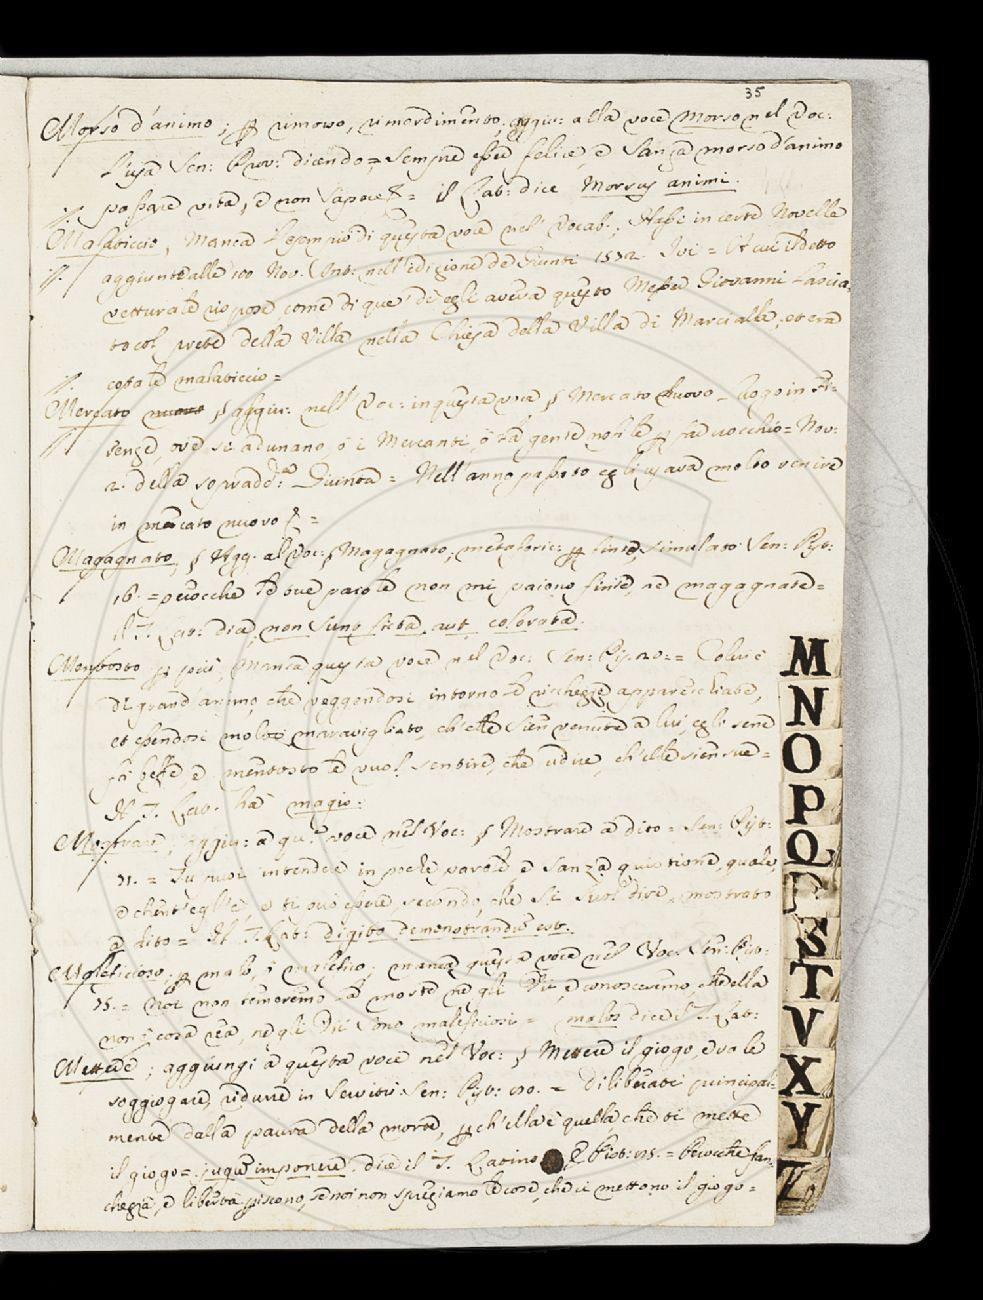 35
Morso d'animo; p rimorso, rimordimento, aggiu: alla voce Morso nel Voc:
L'usa Sen: Prov: dicendo = sempre esser felice, e sanza morso d'animo
passare vita, e non sapere = il Lat: dice Morsus animi.
Malaticcio, manca l'esempio di questa voce nel Vocab.; Hassi in certe Novelle
aggiunte alle 100 Nov. Ant: nell'edizione de Giunti 1572. Ivi = Et cui il detto
vetturale rispose come di que' dì egli aveva questo Messer Giovanni lascia-
to col prete della Villa nella Chiesa della Villa di Marcialla; et era
cosa malaticcio =
Mercato nuovo § aggiu: nell' Voc: in questa voce § Mercato nuovo - luogo in Fi-
renze, ove si adunano, o i Mercanti, o la gente nobile p far crocchio = Nov:
2. della sopradd: Giunta = Nell'anno passato egli usava molto venire
in mercato nuovo =
Magagnato, § Agg. al Voc: § Magagnato, metaforic: p finto, simulato Sen: Pist:
16. = perocche le sue parole non mi paiono finte, ne magagnate =
Il T. Lat: dice, non sunt ficta, aut colorata.
Mentosto p più, Manca questa voce nel Voc: Sen: Pis. 20: = Colui è
di grand'animo, che veggendosi intorno le ricchezze apparecchiate,
et essendosi molto maravigliato, ch'elle sien venute a lui, egli sene
fa beffe, e mentosto le vuol sentire, che udire, ch'elle sien sue =
Il T. Lat. ha magis:
Mostrare, aggiu: a qu: voce nel Voc: § Mostrare a dito = Sen: Pist:
71. = Tu puoi intendere in poche parole e sanza quistione, quale,
e chent'egl'è, e ti può essere, secondo, che si suol dire, mostrato
a dito = Il T. Lat: digito demonstrandus est.
Maleficioso, p malo, o malefico; manca questa voce nel Voc: Sen: Pist:
75. = Noi non temeremo la morte ne gli Dii, e conosceremo, che ella
non è cosa rea, ne gli Dii sono maleficiosi = malos dice il T. Lat:
Mettere; aggiungi a questa voce nel Voc: § Mettere il giogo, e vale
soggiogare, ridurre in Servitù Sen: Pist: 80. = Diliberati principal-
mente dalla paura della morte, p ch'ella è quella che ti mette
il giogo = jugum imponere. dice il T. Latino E Pist: 85. = Perocche fran-
chezza, e libertà piscono, se noi non spregiamo le cose, che ci mettono il giogo =
M
N
O
P
Q
R
S
T
V
X
Y
Z